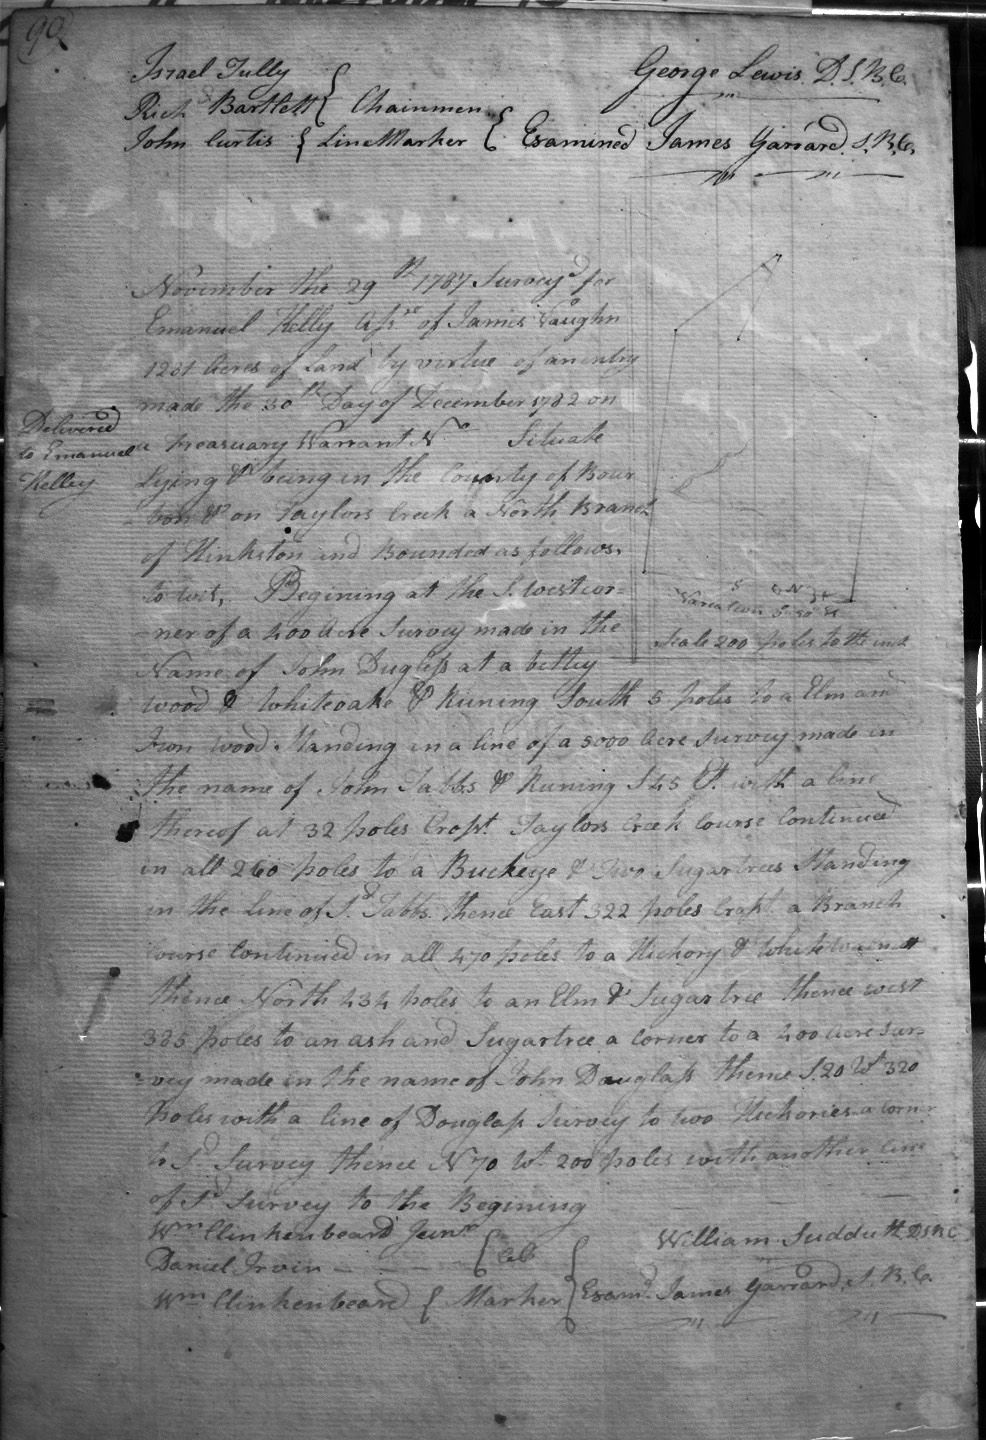 90
Israel Tully
Rich Bartlett } Chainmen
John Curtis } Line Marker
George Lewis D. S. B. C.
Examined James Garrard, S. B. Co.
November the 29th 1787 Surveyd for
Emanuel Kelly Asse of James Vaughn
1201 Acres of Land by virtue of an entry
made the 30th Day of December 1782 on
a Treasuary Warrant No Situate
Lying & being in the County of Bour
bon & on Taylors Creek a North Branch
of Hinkston and Bounded as follows,
to wit, Begining at the S. west cor=
=ner of a 400 Acre Survey made in the
Name of John Duglass at a bitty
wood & Whiteoake & Runing South 5 poles to a Elm and
Iron wood Standing in a line of a 5000 Acre Survey made in
the name of John Tabbs & Runing S 45 E. with a line
thereof at 32 poles Crosst. Taylors Creek Course Continued
in all 260 poles to a Buckeye & Two Sugartrees Standing
in the Line of Sd Tabbs. thence East 322 poles Crosst a Branch
Course Continued in all 470 poles to a Hickory & White
thence North 434 poles to an Elm & Sugartree thence west
385 poles to an ash and Sugartree a Corner to a 400 acre Sur=
=vey made in the name of John Douglass thence S. 20 Wt 320
Poles with a line of Douglass Survey to two Hickories a Corner
to Sd Survey thence N 70 Wt 200 poles with another line
of Sd Survey to the Begining
Delivered
to Emanuel
Kelley
Variation
Scale 200 poles to the inch
Wm Clinkenbeard Junr
Daniel Irvin } CC
Wm Clinkenbeard } Marker
William Sudduth D S B C
Examd. James Garrard, S. B. Co.